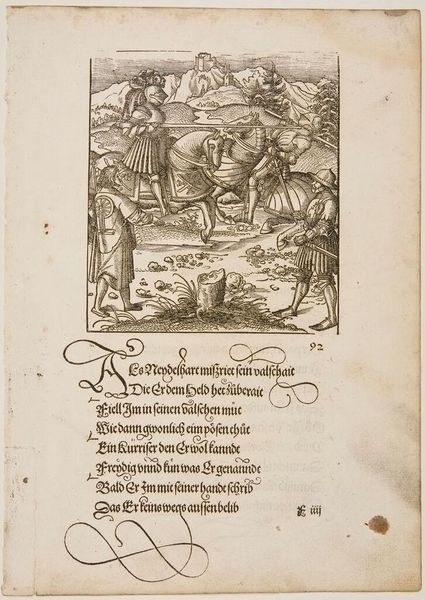 92
Als Neydelhart miszriet sein valschait
Die Er dem Held het zůberait
Fiell Im in seinen valschen můt
Wie dann gwonlich eim pösen thůt
Ein Kurriser den Er wol kanndt
Freydig vnnd kůn was Er genanndt
Bald Er Im mit seiner handt schrib
Das Er keins wegs aussen belib
F iiij